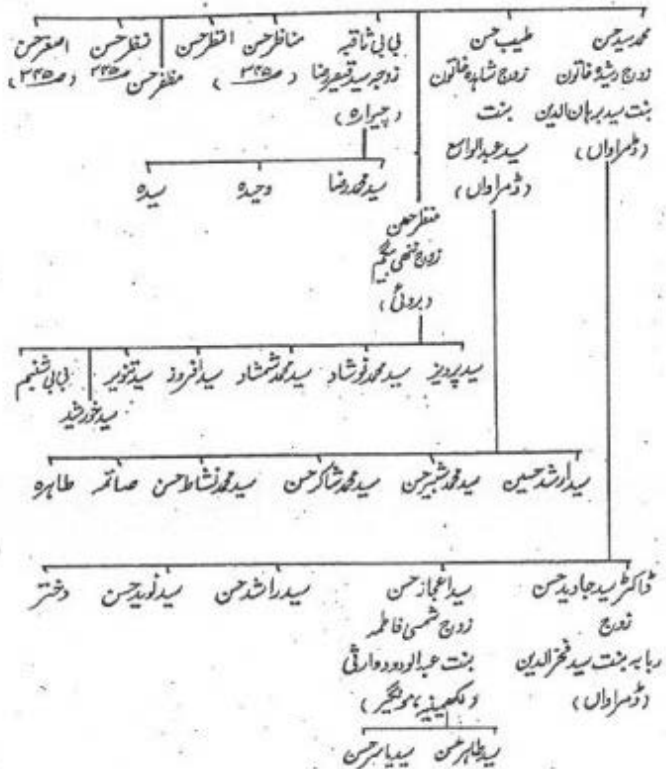 محمد سید حسن
زوج رشیدہ خاتون
بنت سید برہان الدین
(ڈمراواں)
طیب حسن
زوج شاہدہ خاتون
بنت
سید عبدالواسع
(ڈمراواں)
بی بی ثاقبہ
زوجہ سید قیصر رضا
(چیوارہ)
مناظر حسن
(ص۳۴۵)
انظر حسن
مظفر حسن
نظر حسن
ص۳۴۵
اصغر حسن
(ص۳۴۵)
سید محمد رضا
وحیدہ
سیدہ
منظر حسن
زوج ننھی بیگم
سید پرویز
سید محمد نوشاد
سید محمد شمشاد
سید افروز
سید تنویر
سید خورشید
بی بی شنیم
سید ارشد حسین
سید محمد شبیر حسن
سید محمد شاکر حسن
سید محمد نشاط حسن
صائمہ
طاہرہ
ڈاکٹر سید جاوید حسن
زوج
ربابہ بنت سید فخر الدین
(ڈمراواں)
سید اعجاز حسن
زوج شمسی فاطمہ
بنت عبدالودود وارثی
(لکھمینیہ، مونگیر)
سید راشد حسن
سید نوید حسن
دختر
سید طاہر حسن
سید یاسر حسن